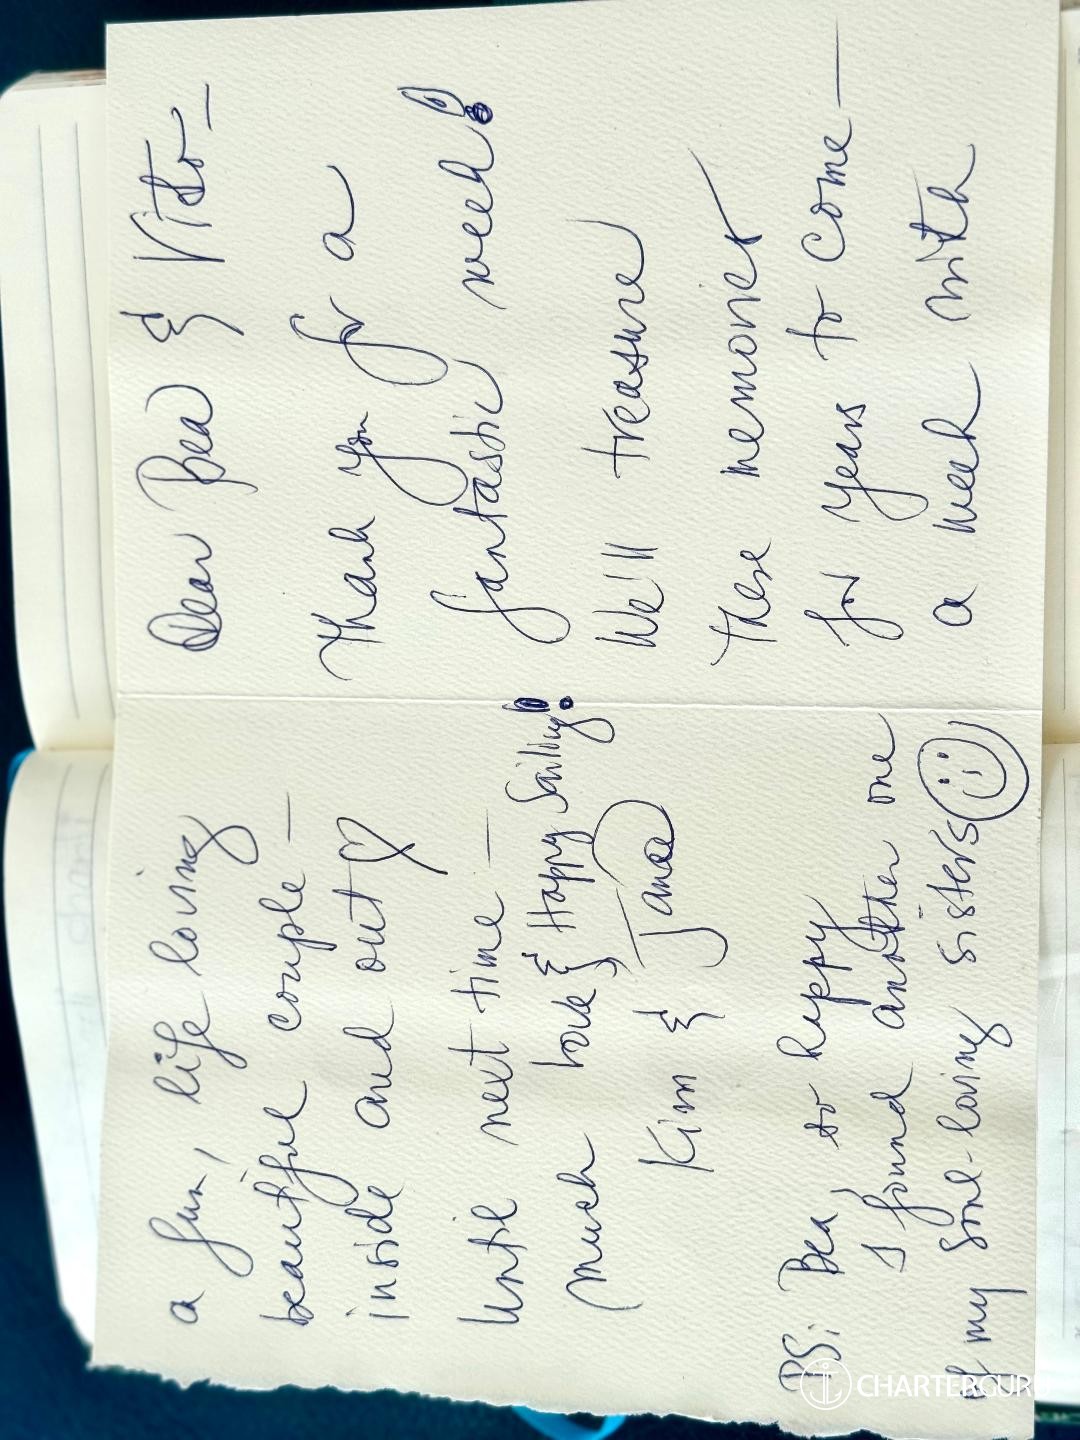 Dear Bea & Vito –
Thank you for a
fantastic week!
We'll treasure
these memories
for years to come –
a week with
a fun, life loving
beautiful couple –
inside and out ♡
Until next time –
much love & Happy Sailing!
Kim & Janae
PS: Bea, so happy
I found another one
of my soul-loving sisters ☺
CHARTERGURU